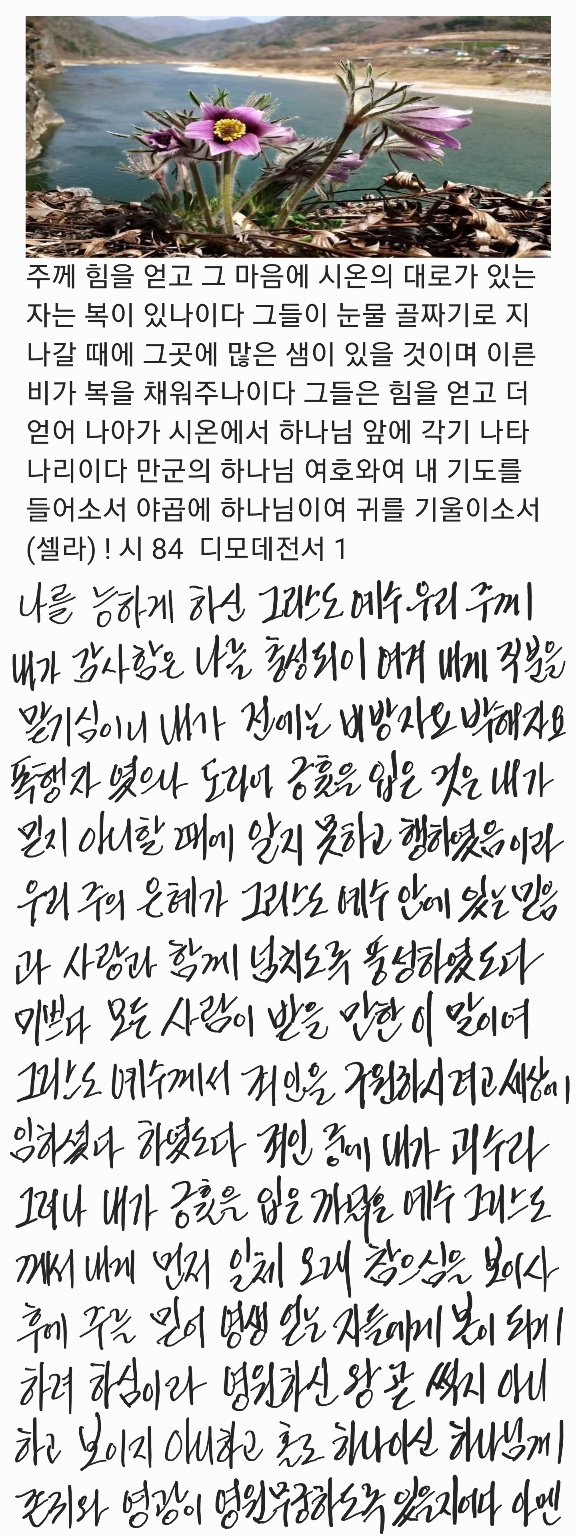 주께 힘을 얻고 그 마음에 시온의 대로가 있는
자는 복이 있나이다 그들이 눈물 골짜기로 지
나갈 때에 그곳에 많은 샘이 있을 것이며 이른
비가 복을 채워주나이다 그들은 힘을 얻고 더
얻어 나아가 시온에서 하나님 앞에 각기 나타
나리이다 만군의 하나님 여호와여 내 기도를
들어소서 야곱에 하나님이여 귀를 기울이소서
(셀라) ! 시 84 디모데전서 1
나를 능하게 하신 그리스도 예수 우리 주께
내가 감사함은 나를 충성되이 여겨 내게 직분을
맡기심이니 내가 전에는 비방자요 박해자요
폭행자 였으나 도리어 긍휼을 입은 것은 내가
믿지 아니할 때에 알지 못하고 행하였음이라
우리 주의 은혜가 그리스도 예수 안에 있는 믿음
과 사랑과 함께 넘치도록 풍성하였도다
미쁘다 모든 사람이 받을 만한 이 말이여
그리스도 예수께서 죄인을 구원하시려고 세상에
임하셨다 하였도다 죄인 중에 내가 괴수라
그러나 내가 긍휼을 입은 까닭은 예수 그리스도
께서 내게 먼저 일체 오래 참으심을 보이사
후에 주를 믿어 영생 얻는 자들에게 본이 되게
하려 하심이라 영원하신 왕 곧 썩지 아니
하고 보이지 아니하고 홀로 하나이신 하나님께
존귀와 영광이 영원무궁하도록 있을지어다 아멘